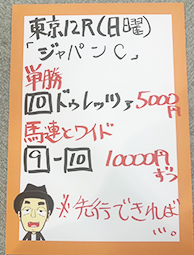 東京12R(日曜)
「ジャパンC」
単勝
10 ドゥレッツァ 5000円
馬連とワイド
9-10 10000円ずつ
※先行できれば…。